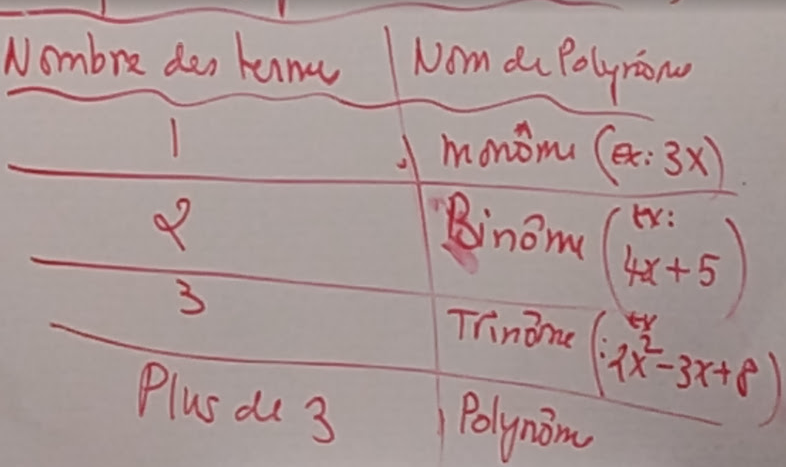 Nombre des termes | Nom de Polynôme
1 | monôme (ex: 3x)
2 | Binôme (ex: 4x+5)
3 | Trinôme (ex: 2x²-3x+8)
Plus de 3 | Polynôme